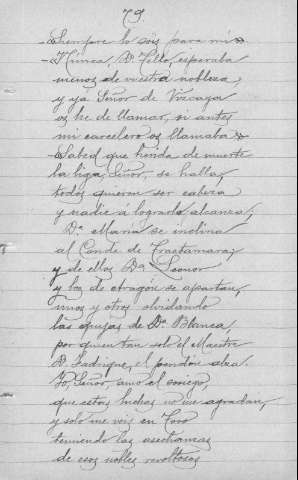 79.
-Siempre lo sois para mi»
-Nunca, D. Tello, esperaba
menos de vuestra nobleza,
y yá Señor de Vizcaya
os he de llamar, si antes
mi carcelero os llamaba»
«Sabed que herida de muerte
la liga, Señor, se halla,
todos quieren ser cabeza
y nadie á lograrlo alcanza;
Dª Maria se inclina
al Conde de Trastamara;
y de ellos Dª Leonor
y los de Aragon se apartan,
unos y otros olvidando
las quejas de Dª Blanca,
por quien tan solo el Maestre
D. Fadrique, el pendón alza.
Yo, Señor, amo el sosiego,
que estas luchas no me agradan,
y solo me veis en Toro
temiendo las asechanzas
de esos nobles revoltosos